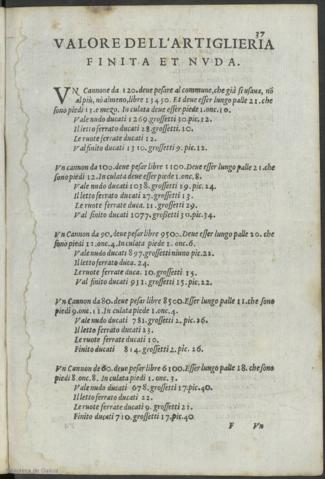 37
VALORE DELL'ARTIGLIERIA
FINITA ET NVDA.
VN Cannone da 120. deue pesare al commune, che già si usaua, nō
al più, nō almeno, libre 13450. Et deue esser lungo palle 21. che
sono piedi 13. e mezo. In culata deue essere piede 1. onc. 10.
Vale nudo ducati 1269. grossetti 30. pic. 12.
Il letto ferrato ducati 28. grossetti. 10.
Le ruote ferrate ducati 12.
Val finito ducati 1310. grossetti 9. pic. 12.
Vn cannon da 100. deue pesar libre 1100. Deue esser lungo palle 21. che
sono piedi 12. In culata deue esser piede 1. onc. 8.
Vale nudo ducati 1038. grossetti 19. pic. 24.
Il letto ferrato ducati 27. grossetti 13.
Le ruote ferrate duca. 11. grossetti 29.
Val finito ducati 1077. grossetti 30. pic. 34.
Vn Cannon da 90. deue pesar libre 9500. Deue esser lungo palle 20. che
sono piedi 11. onc. 4. In culata piede 1. onc. 6.
Vale nudo ducati 897. grossetti niuno pic. 22.
Il letto ferrato duca. 24.
Le ruote ferrate duca. 10. grossetti 15.
Val finito ducati 931. grossetti 15. pic. 22.
Vn Cannon da 80. deue pesar libre 8500. Esser lungo palle 11. che sono
piedi 9. onc. 11. In culata piede 1. onc. 4.
Vale nudo ducati 781. grossetti 2. pic. 26.
Il letto ferrato ducati 23.
Le ruote ferrate ducati 10.
Finito ducati 814. grossetti 2. pic. 26.
Vn Cannon de 60. deue pesar libre 6100. Esser lungo palle 18. che sono
piedi 8. onc. 8. In culata piedi 1. onc. 3.
Vale nudo ducati 678. grossetti 17. pic. 40.
Il letto ferrato ducati 22.
Le ruote ferrate ducati 9. grossetti 21.
Finito ducati 710. grossetti 17. pic. 40
F Vn
Biblioteca de Galicia